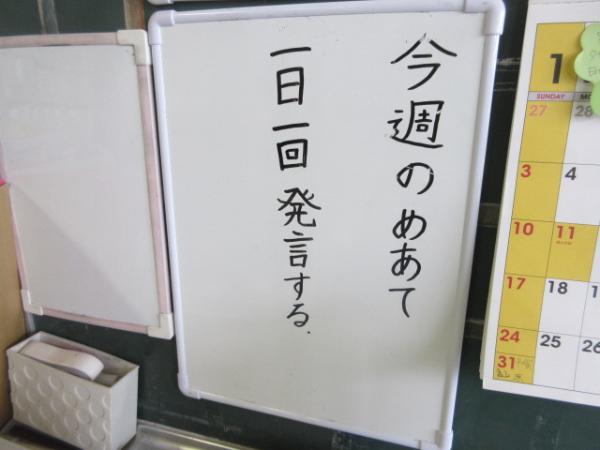 今週のめあて
一日一回発言する.
1
SUNDAY
27 28
3 4
10 11
17 18
24 25 26
31